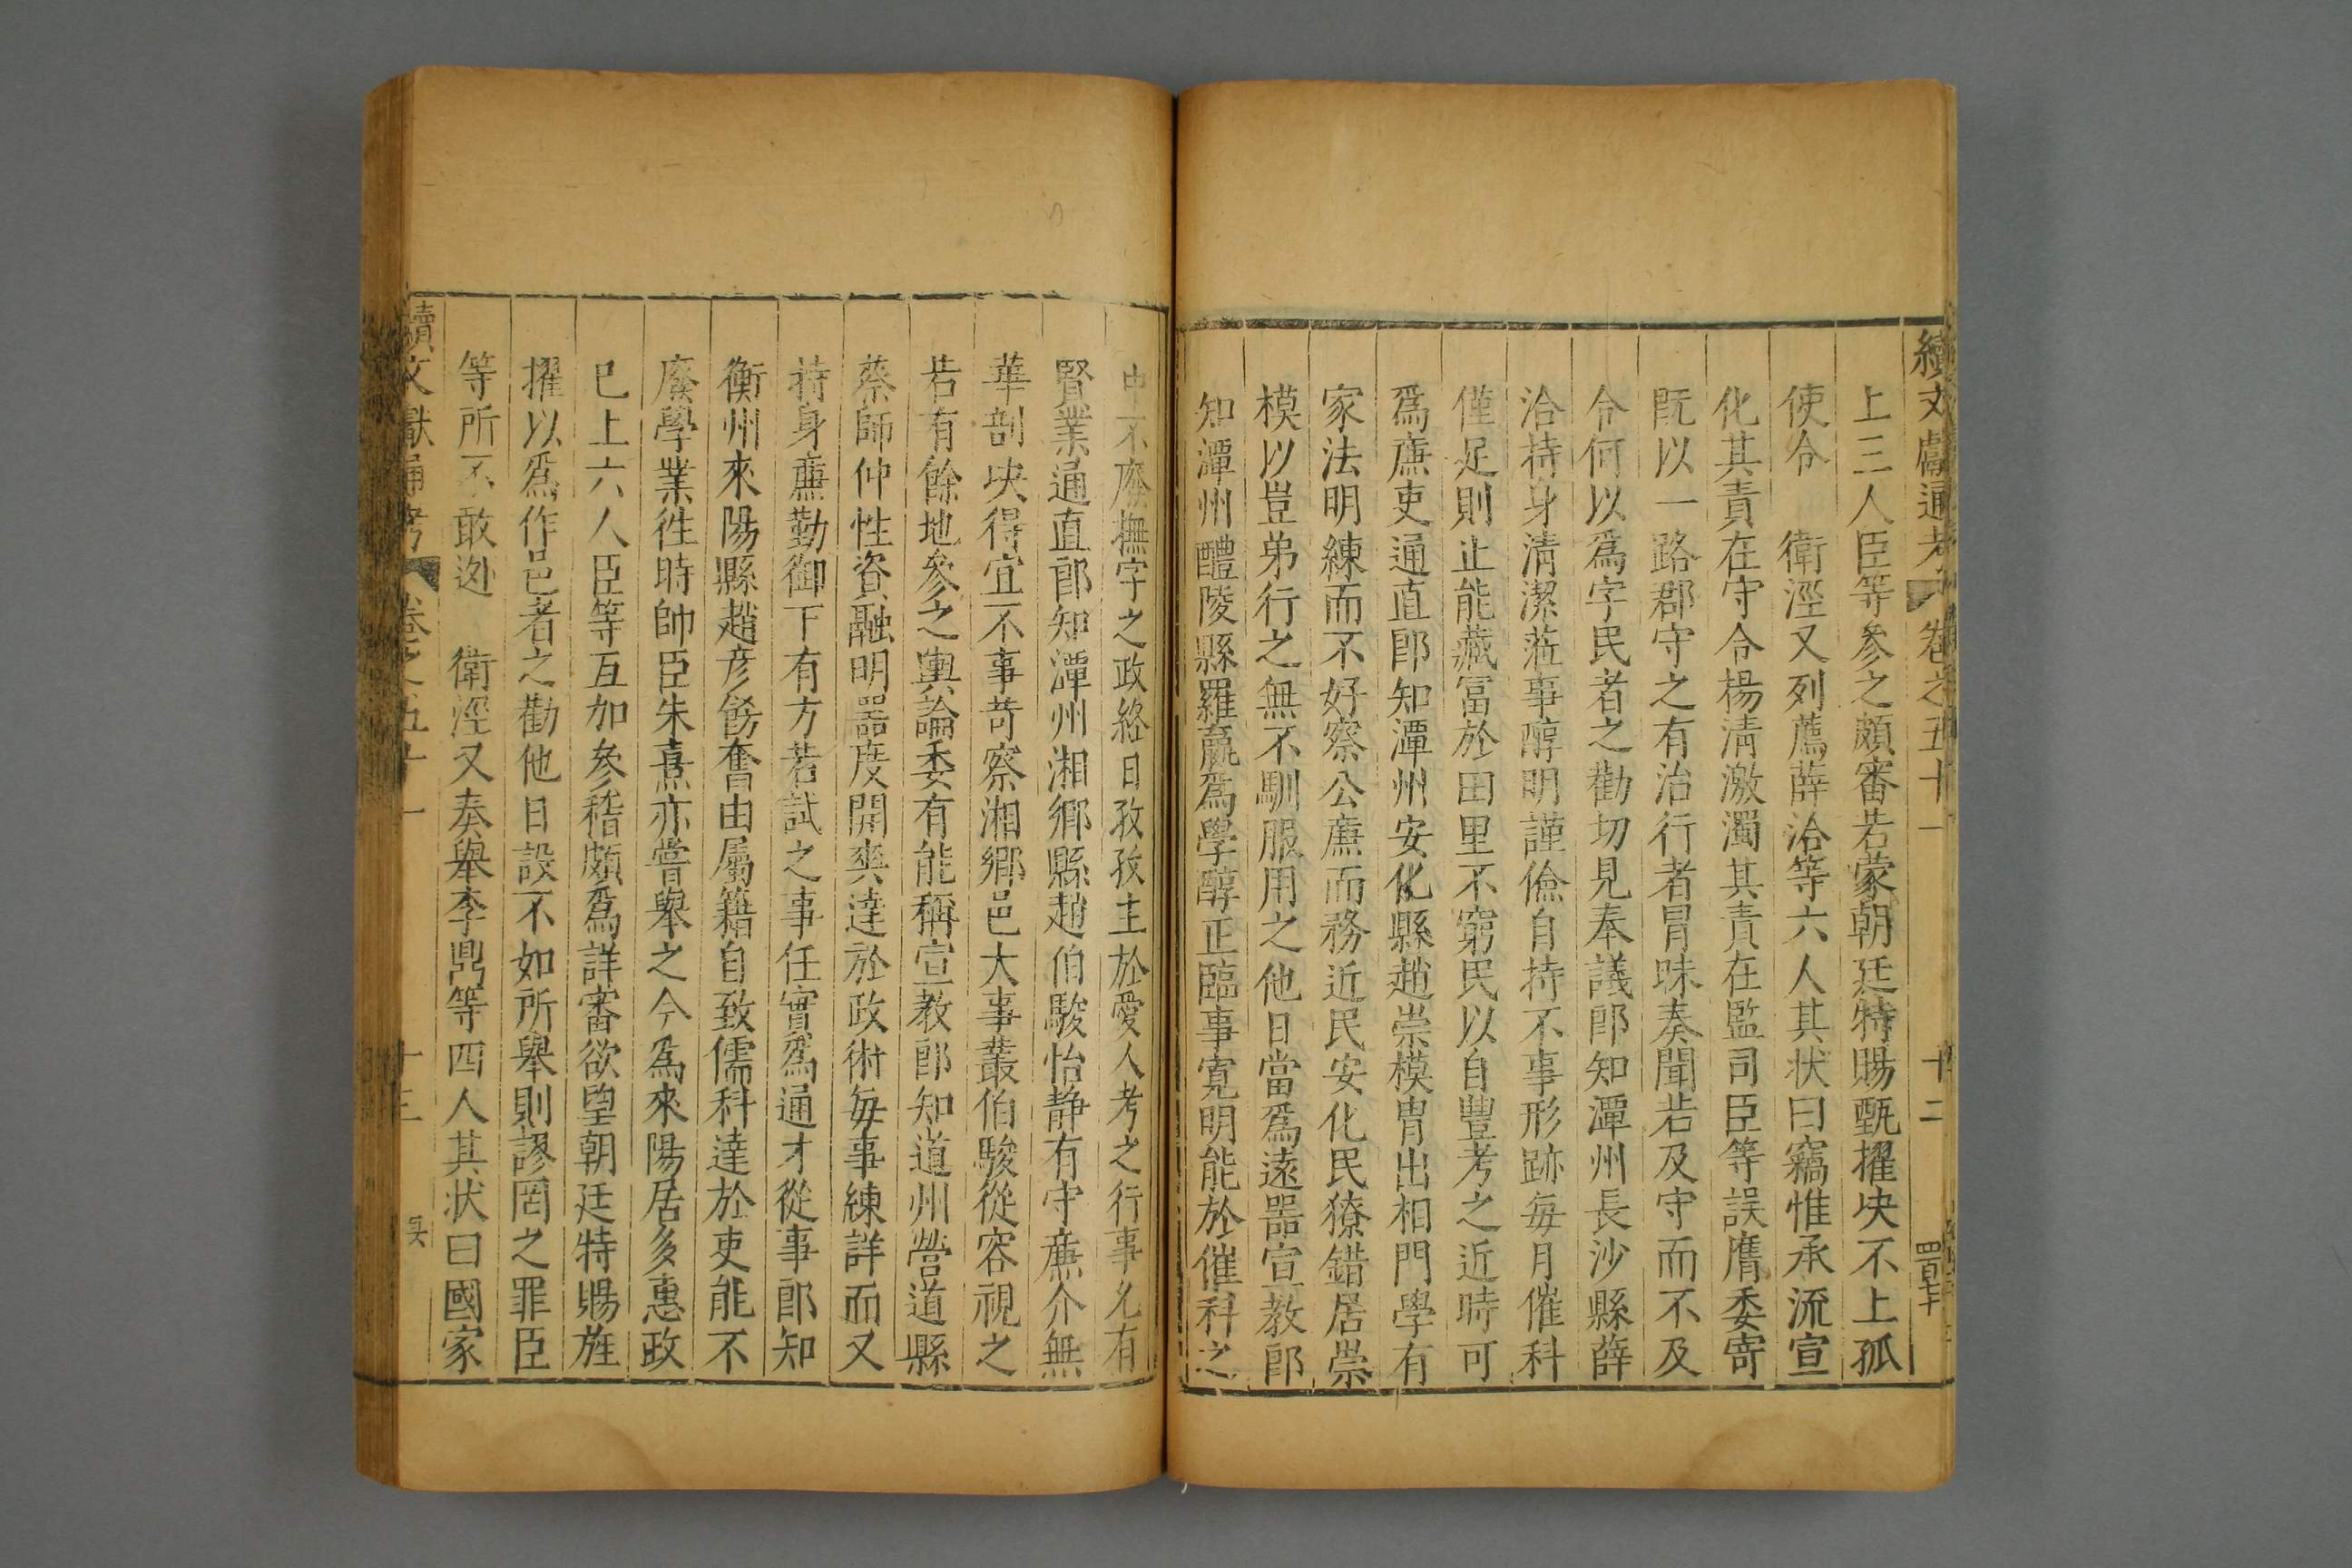 續文獻通考 卷之五十一 十二
上三人臣等參之頗審若蒙朝廷特賜甄擢决不上孤
使令 衛涇又列薦薛洽等六人其状曰竊惟承流宣
化其責在守令楊清激濁其責在監司臣等誤膺委寄
旣以一路郡守之有治行者冐昧奏聞若及守而不及
令何以爲字民者之勸切見奉議郎知潭州長沙縣薛
洽持身清潔蒞事醇明謹儉自持不事形跡每月催科
僅足則止能藏冨於田里不窮民以自豐考之近時可
爲廉吏通直郎知潭州安化縣趙崇模胄出相門學有
家法明練而不好察公廉而務近民安化民獠錯居崇
模以豈弟行之無不馴服用之他日當爲遠噐宣教郎
知潭州醴陵縣羅嬴爲學醇正臨事寛明能於催科之
中不廢撫字之政終日孜孜主於愛人考之行事允有
賢業通直郎知潭州湘鄉縣趙伯駿怡静有守廉介無
華剖决得宜不事苛察湘鄉邑大事叢伯駿從容視之
若有餘地參之輿論委有能稱宣教郎知道州營道縣
蔡師仲性資融明噐度開爽達於政術每事練詳而又
持身廉勤御下有方若試之事任實爲通才從事郎知
衡州來陽縣趙彦 奮由屬籍自致儒科達於吏能不
廢學業徃時帥臣朱熹亦嘗舉之今爲來陽居多惠政
已上六人臣等互加參稽頗爲詳審欲望朝廷特賜旌
擢以爲作邑者之勸他日設不如所舉則謬罔之罪臣
等所不敢逊 衛涇又奏舉李鼎等四人其状曰國家
續文獻通考 卷之五十一 十三